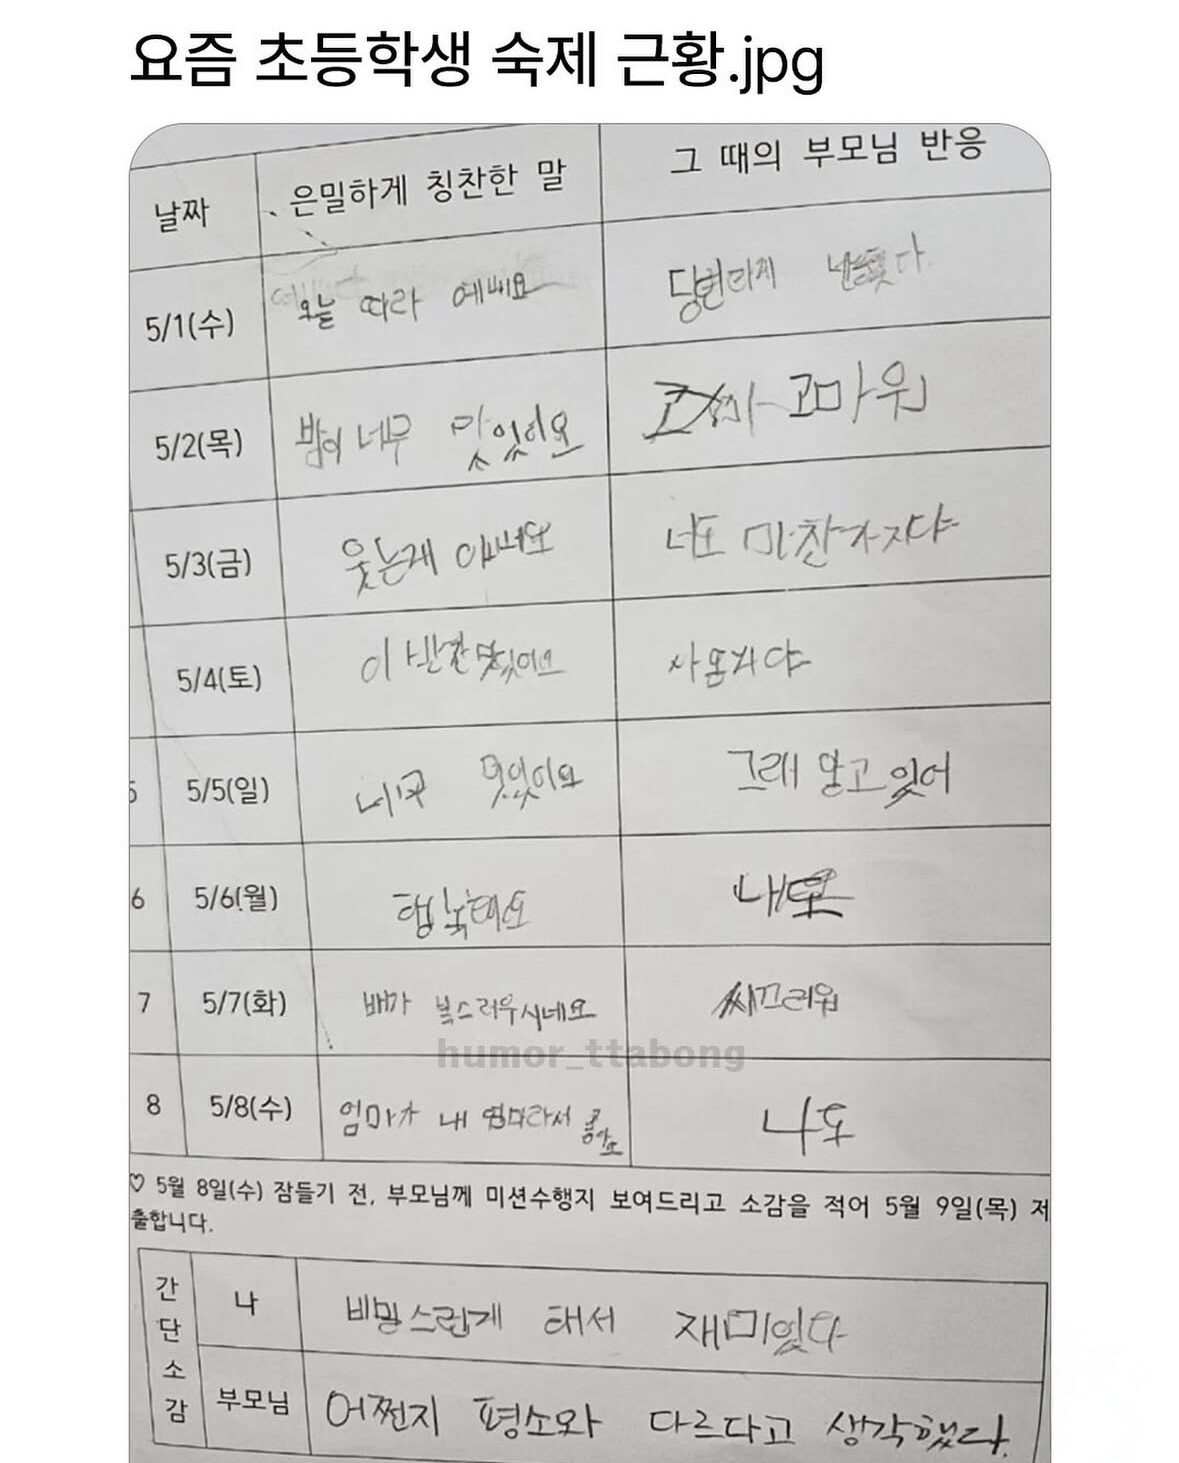 요즘 초등학생 숙제 근황.jpg
날짜 은밀하게 칭찬한 말 그 때의 부모님 반응
5/1(수) 오늘 따라 예뻐요 당연하게
5/2(목) 밥이 너무 맛있어요 고마워
5/3(금) 웃는게 이뻐요 너도 마찬가지야
5/4(토) 이 반찬 맛있어요
5 5/5(일) 너무 멋있어요 그래 알고 있어
6 5/6(월) 행복해요 나도
7 5/7(화) 배가 복스러우시네요 씨끄러워
humor_ttabong
8 5/8(수) 엄마가 내 엄마라서 좋아요 나도
♡ 5월 8일(수) 잠들기 전, 부모님께 미션수행지 보여드리고 소감을 적어 5월 9일(목) 제
출합니다.
간단소감
나 비밀스럽게 해서 재미있다
부모님 어쩐지 평소와 다르다고 생각했다.